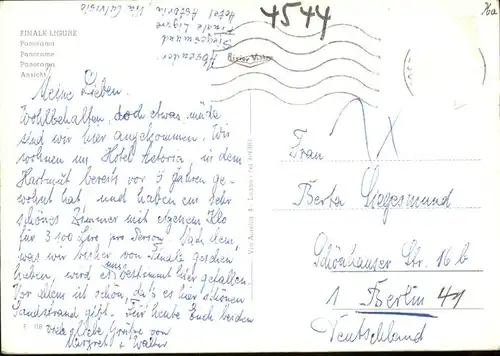 4544
Ka
FINALE LIGURE
Panorama
Panorame
Panorama
Ansicht
Absender:
Siegesmund
Finale Ligure
Hotel Astoria, Via Calvisio
Meine Lieben.
Wohlbehalten, doch etwas müde
sind wir hier angekommen. Wir
wohnen im Hotel Astoria, in dem
Hartmut bereits vor 5 Jahren ge-
wohnt hat und haben ein sehr
schönes Zimmer mit eigenem Klo
für 3100 Lire pro Person. Nach dem,
was wir bisher von Finale gesehen
haben, wird es uns bestimmt hier gefallen.
Vor allem ist schön, daß es hier schönen
Sandstrand gibt. Für heute Euch beiden
viele liebe Grüße von
Margret + Walter
Frau
Berta Siegesmund
Schönhauser Str. 16 b
1 Berlin 41
Deutschland